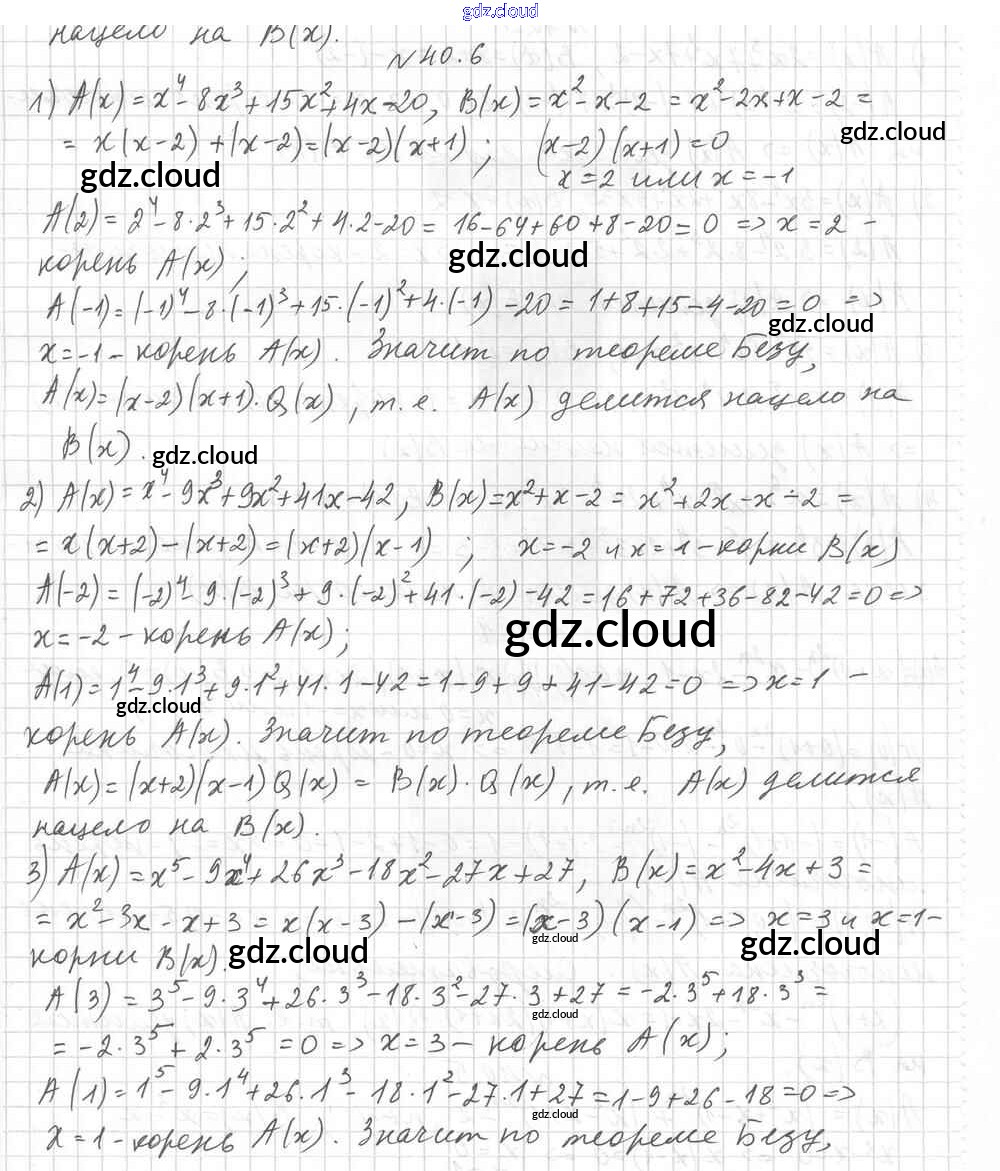 gdz.cloud
нацело на B(x).
№40.6
1) A(x) = x⁴ - 8x³ + 15x² + 4x - 20, B(x) = x² - x - 2 = x² - 2x + x - 2 =
gdz.cloud
= x(x-2) + (x-2) = (x-2)(x+1) ; (x-2)(x+1) = 0
gdz.cloud
x = 2 или x = -1
A(2) = 2⁴ - 8·2³ + 15·2² + 4·2 - 20 = 16 - 64 + 60 + 8 - 20 = 0 => x = 2 -
корень A(x) ;
gdz.cloud
A(-1) = (-1)⁴ - 8·(-1)³ + 15·(-1)² + 4·(-1) - 20 = 1 + 8 + 15 - 4 - 20 = 0 =>
gdz.cloud
x = -1 - корень A(x). Значит по теореме Безу,
A(x) = (x-2)(x+1)·Q(x), т.е. A(x) делится нацело на
B(x).
gdz.cloud
2) A(x) = x⁴ - 9x³ + 9x² + 41x - 42, B(x) = x² + x - 2 = x² + 2x - x - 2 =
= x(x+2) - (x+2) = (x+2)(x-1) ; x = -2 и x = 1 - корни B(x)
A(-2) = (-2)⁴ - 9·(-2)³ + 9·(-2)² + 41·(-2) - 42 = 16 + 72 + 36 - 82 - 42 = 0 =>
x = -2 - корень A(x);
gdz.cloud
A(1) = 1⁴ - 9·1³ + 9·1² + 41·1 - 42 = 1 - 9 + 9 + 41 - 42 = 0 => x = 1 -
gdz.cloud
корень A(x). Значит по теореме Безу,
A(x) = (x+2)(x-1)Q(x) = B(x)·Q(x), т.е. A(x) делится
нацело на B(x).
3) A(x) = x⁵ - 9x⁴ + 26x³ - 18x² - 27x + 27, B(x) = x² - 4x + 3 =
= x² - 3x - x + 3 = x(x-3) - (x-3) = (x-3)(x-1) => x = 3 и x = 1 -
gdz.cloud
корни B(x).
gdz.cloud
gdz.cloud
A(3) = 3⁵ - 9·3⁴ + 26·3³ - 18·3² - 27·3 + 27 = -2·3⁵ + 18·3³ =
gdz.cloud
= -2·3⁵ + 2·3⁵ = 0 => x = 3 - корень A(x);
A(1) = 1⁵ - 9·1⁴ + 26·1³ - 18·1² - 27·1 + 27 = 1 - 9 + 26 - 18 = 0 =>
gdz.cloud
x = 1 - корень A(x). Значит по теореме Безу,
gdz.cloud